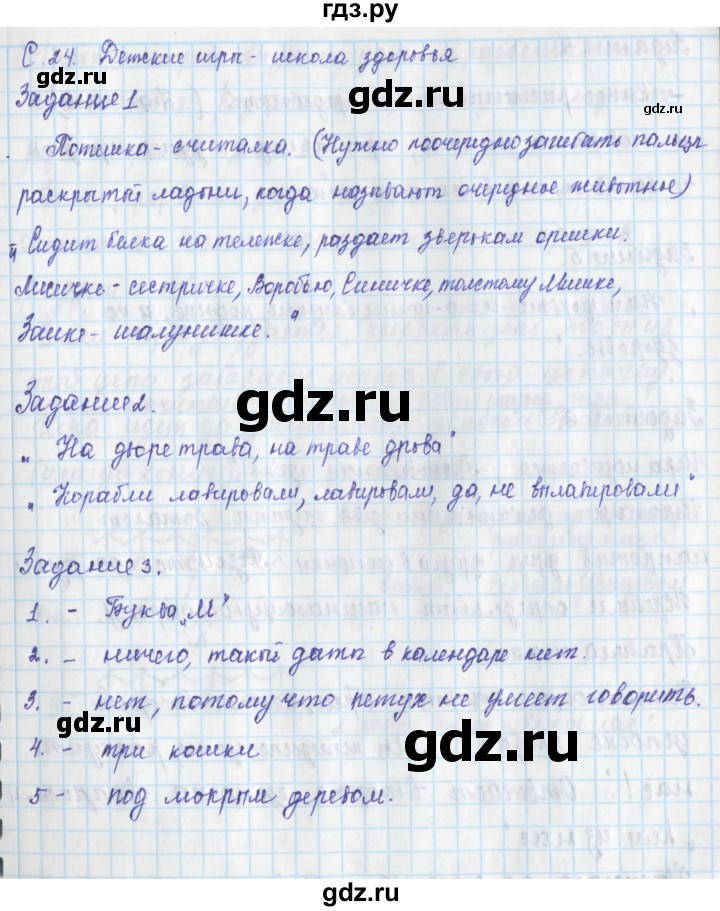 гдз.ру
С. 24. Детские игры - школа здоровья
Задание 1
gdz.ru
Потешка - считалка. (Нужно поочередно загибать пальцы
раскрытой ладони, когда называют очередное животное)
„ Сидит белка на тележке, раздает зверькам орешки.
Лисичке - сестричке, Воробью, Синичке, толстому Мишке,
Заике - шалунишке."
gdz.ru
Задание 2.
„ На дворе трава, на траве дрова"
„ Корабли лавировали, лавировали, да, не вылавировали"
Задание 3.
1. - Буква „М"
2. - ничего, такой даты в календаре нет.
3. - нет, потому что петух не умеет говорить.
gdz.ru
4. - три кошки
gdz.ru
5 - под мокрым деревом.
gdz.ru